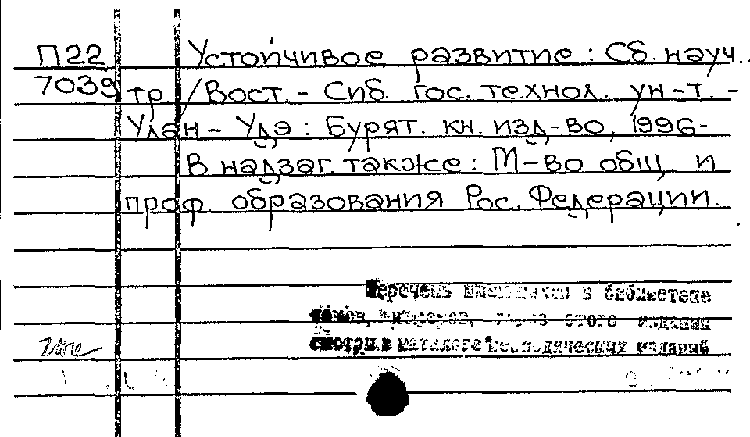 П22 Устойчивое развитие : Сб. науч.
7039 тр. / Вост. - Сиб. гос. технол. ун-т. -
Улан - Удэ : Бурят. кн. изд-во, 1996-
В надзаг. также : М-во общ. и
проф. образования Рос. Федерации.
Перечень имеющихся в библиотеке
томов, выпусков, этого издания
смотри в каталоге периодических изданий